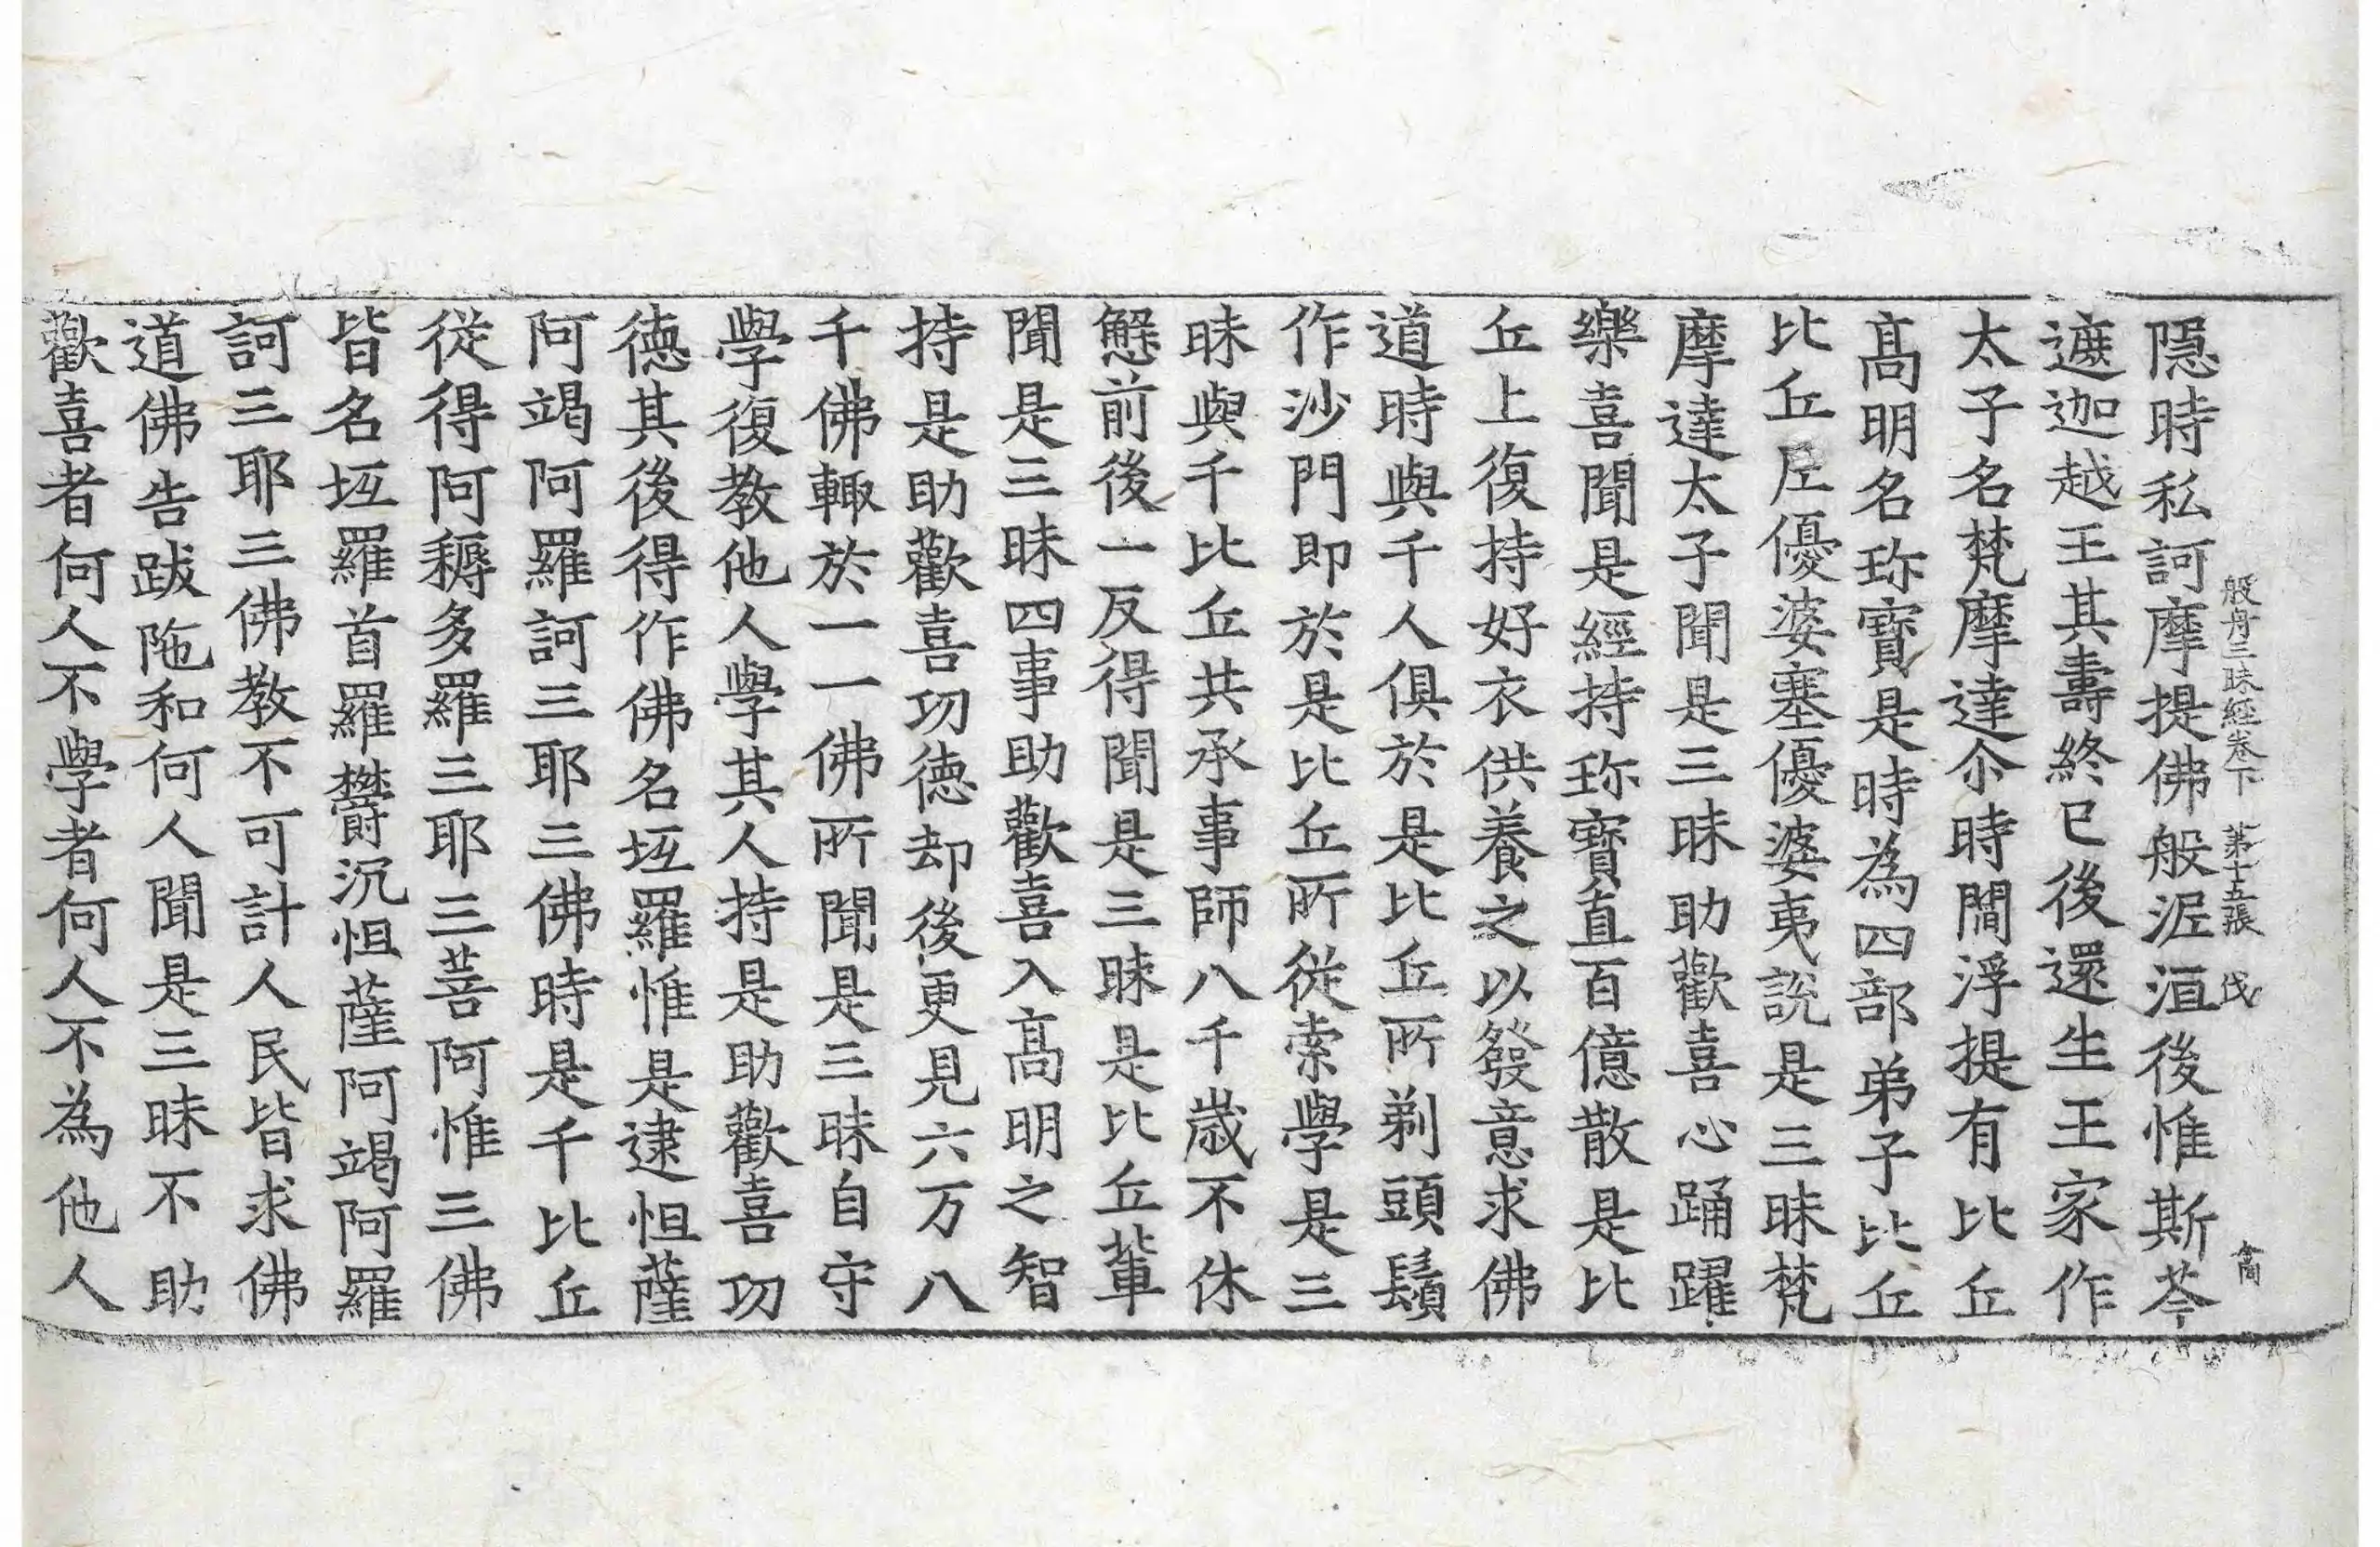 般舟三昧經卷下　第十五張　伐
隱時私訶摩提佛般泥洹後惟斯芩
遮迦越王其壽終已後還生王家作
太子名梵摩達尒時閻浮提有比丘
髙明名珎寳是時為四部弟子比丘
比丘𡰱優婆塞優婆夷說是三昧梵
摩達太子聞是三昧助歡喜心踊躍
樂喜聞是經持珎寳直百億散是比
丘上復持好衣供養之以發意求佛
道時與千人俱於是比丘所剃頭鬚
作沙門即於是比丘所從索學是三
昧與千比丘共承事師八千歳不休
懈前後一反得聞是三昧是比丘輩
聞是三昧四事助歡喜入髙明之智
持是助歡喜功德却後更見六万八
千佛輙於一一佛所聞是三昧自守
學復教他人學其人持是助歡喜功
德其後得作佛名坻羅惟是逮怛薩
阿竭阿羅訶三耶三佛時是千比丘
從得阿耨多羅三耶三菩阿惟三佛
皆名坻羅首羅欝沉怛薩阿竭阿羅
訶三耶三佛教不可計人民皆求佛
道佛告䟦陁和何人聞是三昧不助
歡喜者何人不學者何人不為他人